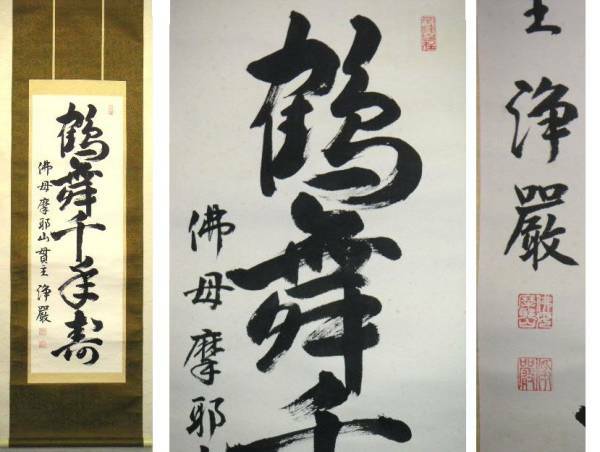 鶴舞千年寿
佛母摩耶山貫主 浄嚴
鶴舞千
佛母摩耶
主 浄嚴